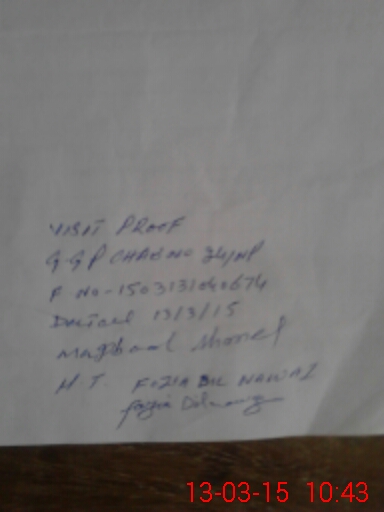 VISIT PROOF
G.G.P CHAB NO 34/NP
F NO-150313104
Dated 13/3/15
Maqbool Ahmed
H.T. FOZIA DIL NAWAZ
13-03-15 10:43